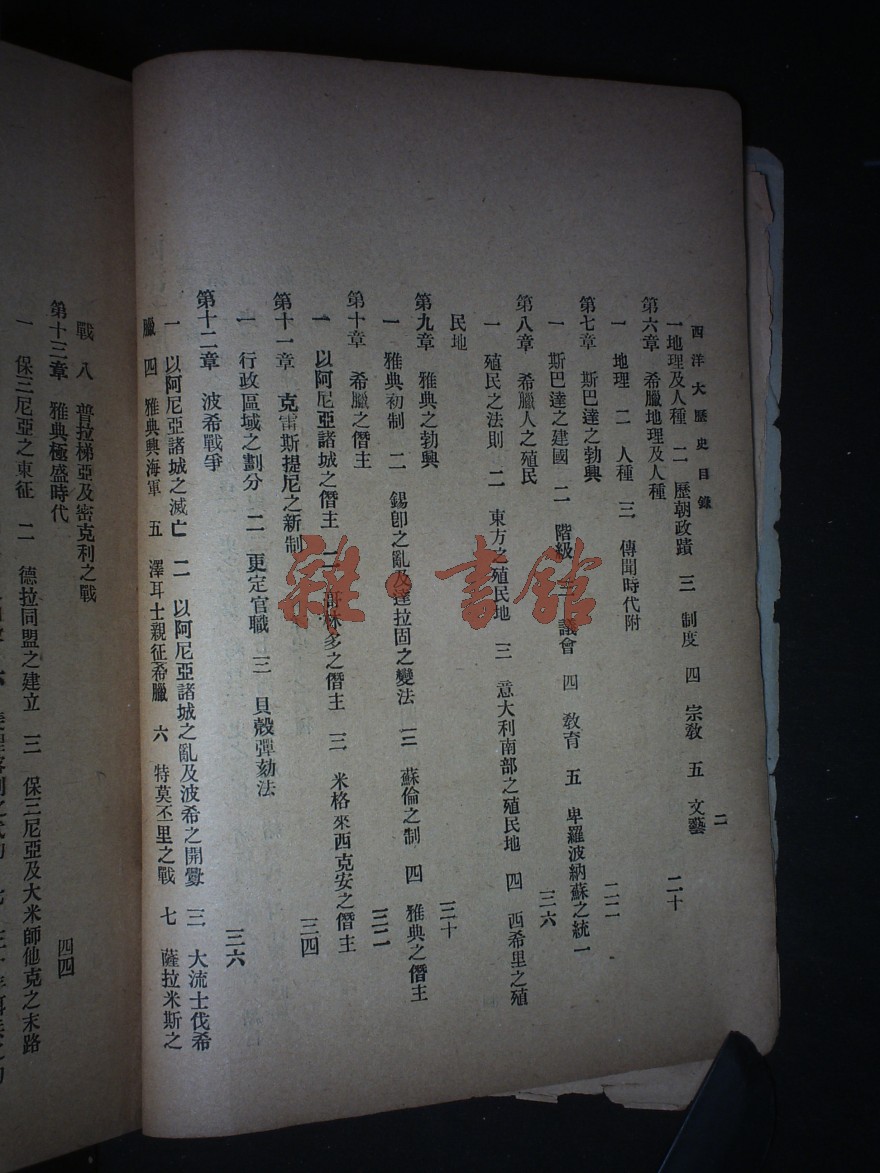 西洋大歷史目錄 二
一地理及人種 二 歷朝政蹟 三 制度 四 宗教 五 文藝
第六章 希臘地理及人種 二十
一 地理 二 人種 三 傳聞時代附
第七章 斯巴達之勃興 二二
一 斯巴達之建國 二 階級 三 議會 四 教育 五 卑羅波納蘇之統一
第八章 希臘人之殖民 三六
一 殖民之法則 二 東方之殖民地 三 意大利南部之殖民地 四 西希里之殖
民地
第九章 雅典之勃興 三十
一 雅典初制 二 錫卽之亂及達拉固之變法 三 蘇倫之制 四 雅典之僭主
第十章 希臘之僭主 三二
一 以阿尼亞諸城之僭主 二 哥林多之僭主 三 米格來西克安之僭主
第十一章 克雷斯提尼之新制 三四
一 行政區域之劃分 二 更定官職 三 貝殼彈劾法
第十二章 波希戰爭 三六
一 以阿尼亞諸城之滅亡 二 以阿尼亞諸城之亂及波希之開釁 三 大流士伐希
臘 四 雅典興海軍 五 澤耳士親征希臘 六 特莫丕里之戰 七 薩拉米斯之
戰 八 普拉梯亞及密克利之戰
第十三章 雅典極盛時代 四四
一 保三尼亞之東征 二 德拉同盟之建立 三 保三尼亞及大米師他克之末路
雜·書館